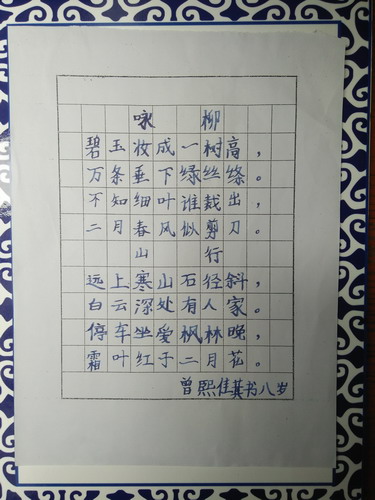 咏柳
碧玉妆成一树高，
万条垂下绿丝绦。
不知细叶谁裁出，
二月春风似剪刀。
山行
远上寒山石径斜，
白云深处有人家。
停车坐爱枫林晚，
霜叶红于二月花。
曾熙佳其书八岁